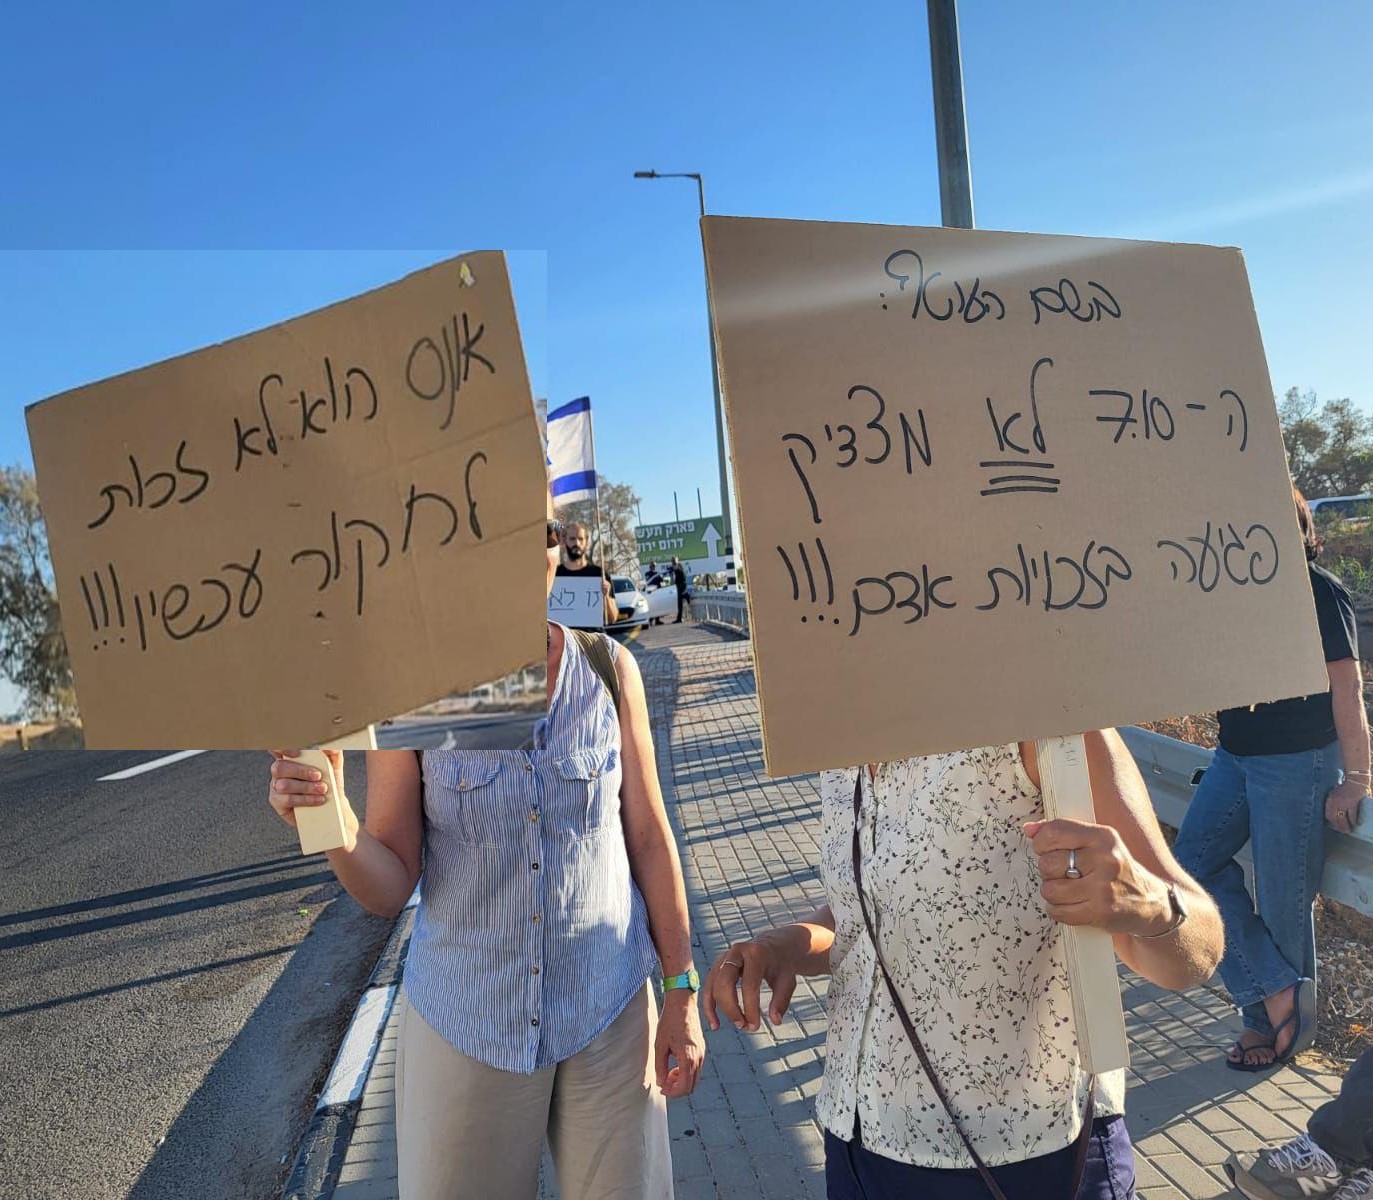 אונס הוא לא זכות
לחקור עכשיו!!!
בשם העוטף:
ה-7.10 לא מצדיק
פגיעה בזכויות אדם!!!
פארק תעש
דרום ירוק
זו לא